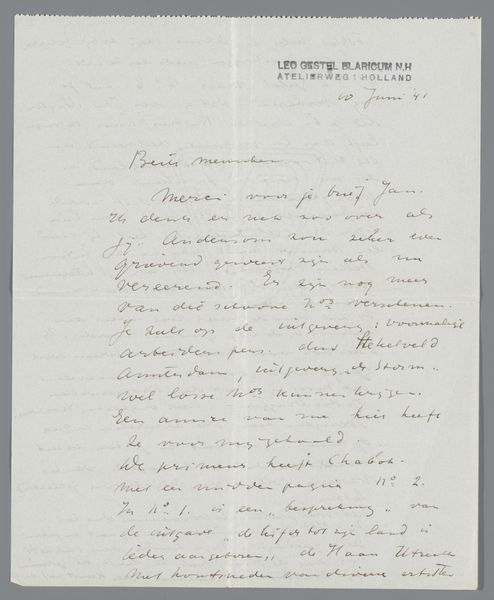 LEO GESTEL BLARICUM N.H
ATELIERWEG 1 HOLLAND
10 Juni '41
Beste menschen
Merci voor je brief Jan.
Ik denk er net zoo over als
jij. Andersom zou zeker even
grievend geweest zijn als nu
vereerend. Er zijn nog meer
van die schoone Nos verschenen.
Je zult op de uitgeverij: voormalige
arbeiderspers. Hekelveld
Amsterdam, uitgeverij de Storm.
wel losse Nos kunnen krijgen.
Een amice van me hier heeft
ze voor mij gehaald.
De primeur heeft Chabot.
met een midden pagina No 2.
In No 1. is een "bespreking" van
de uitgave "de liefde tot zijn land is
ieder aangeboren", de Haan Utrecht
met houtsneden van diverse artisten